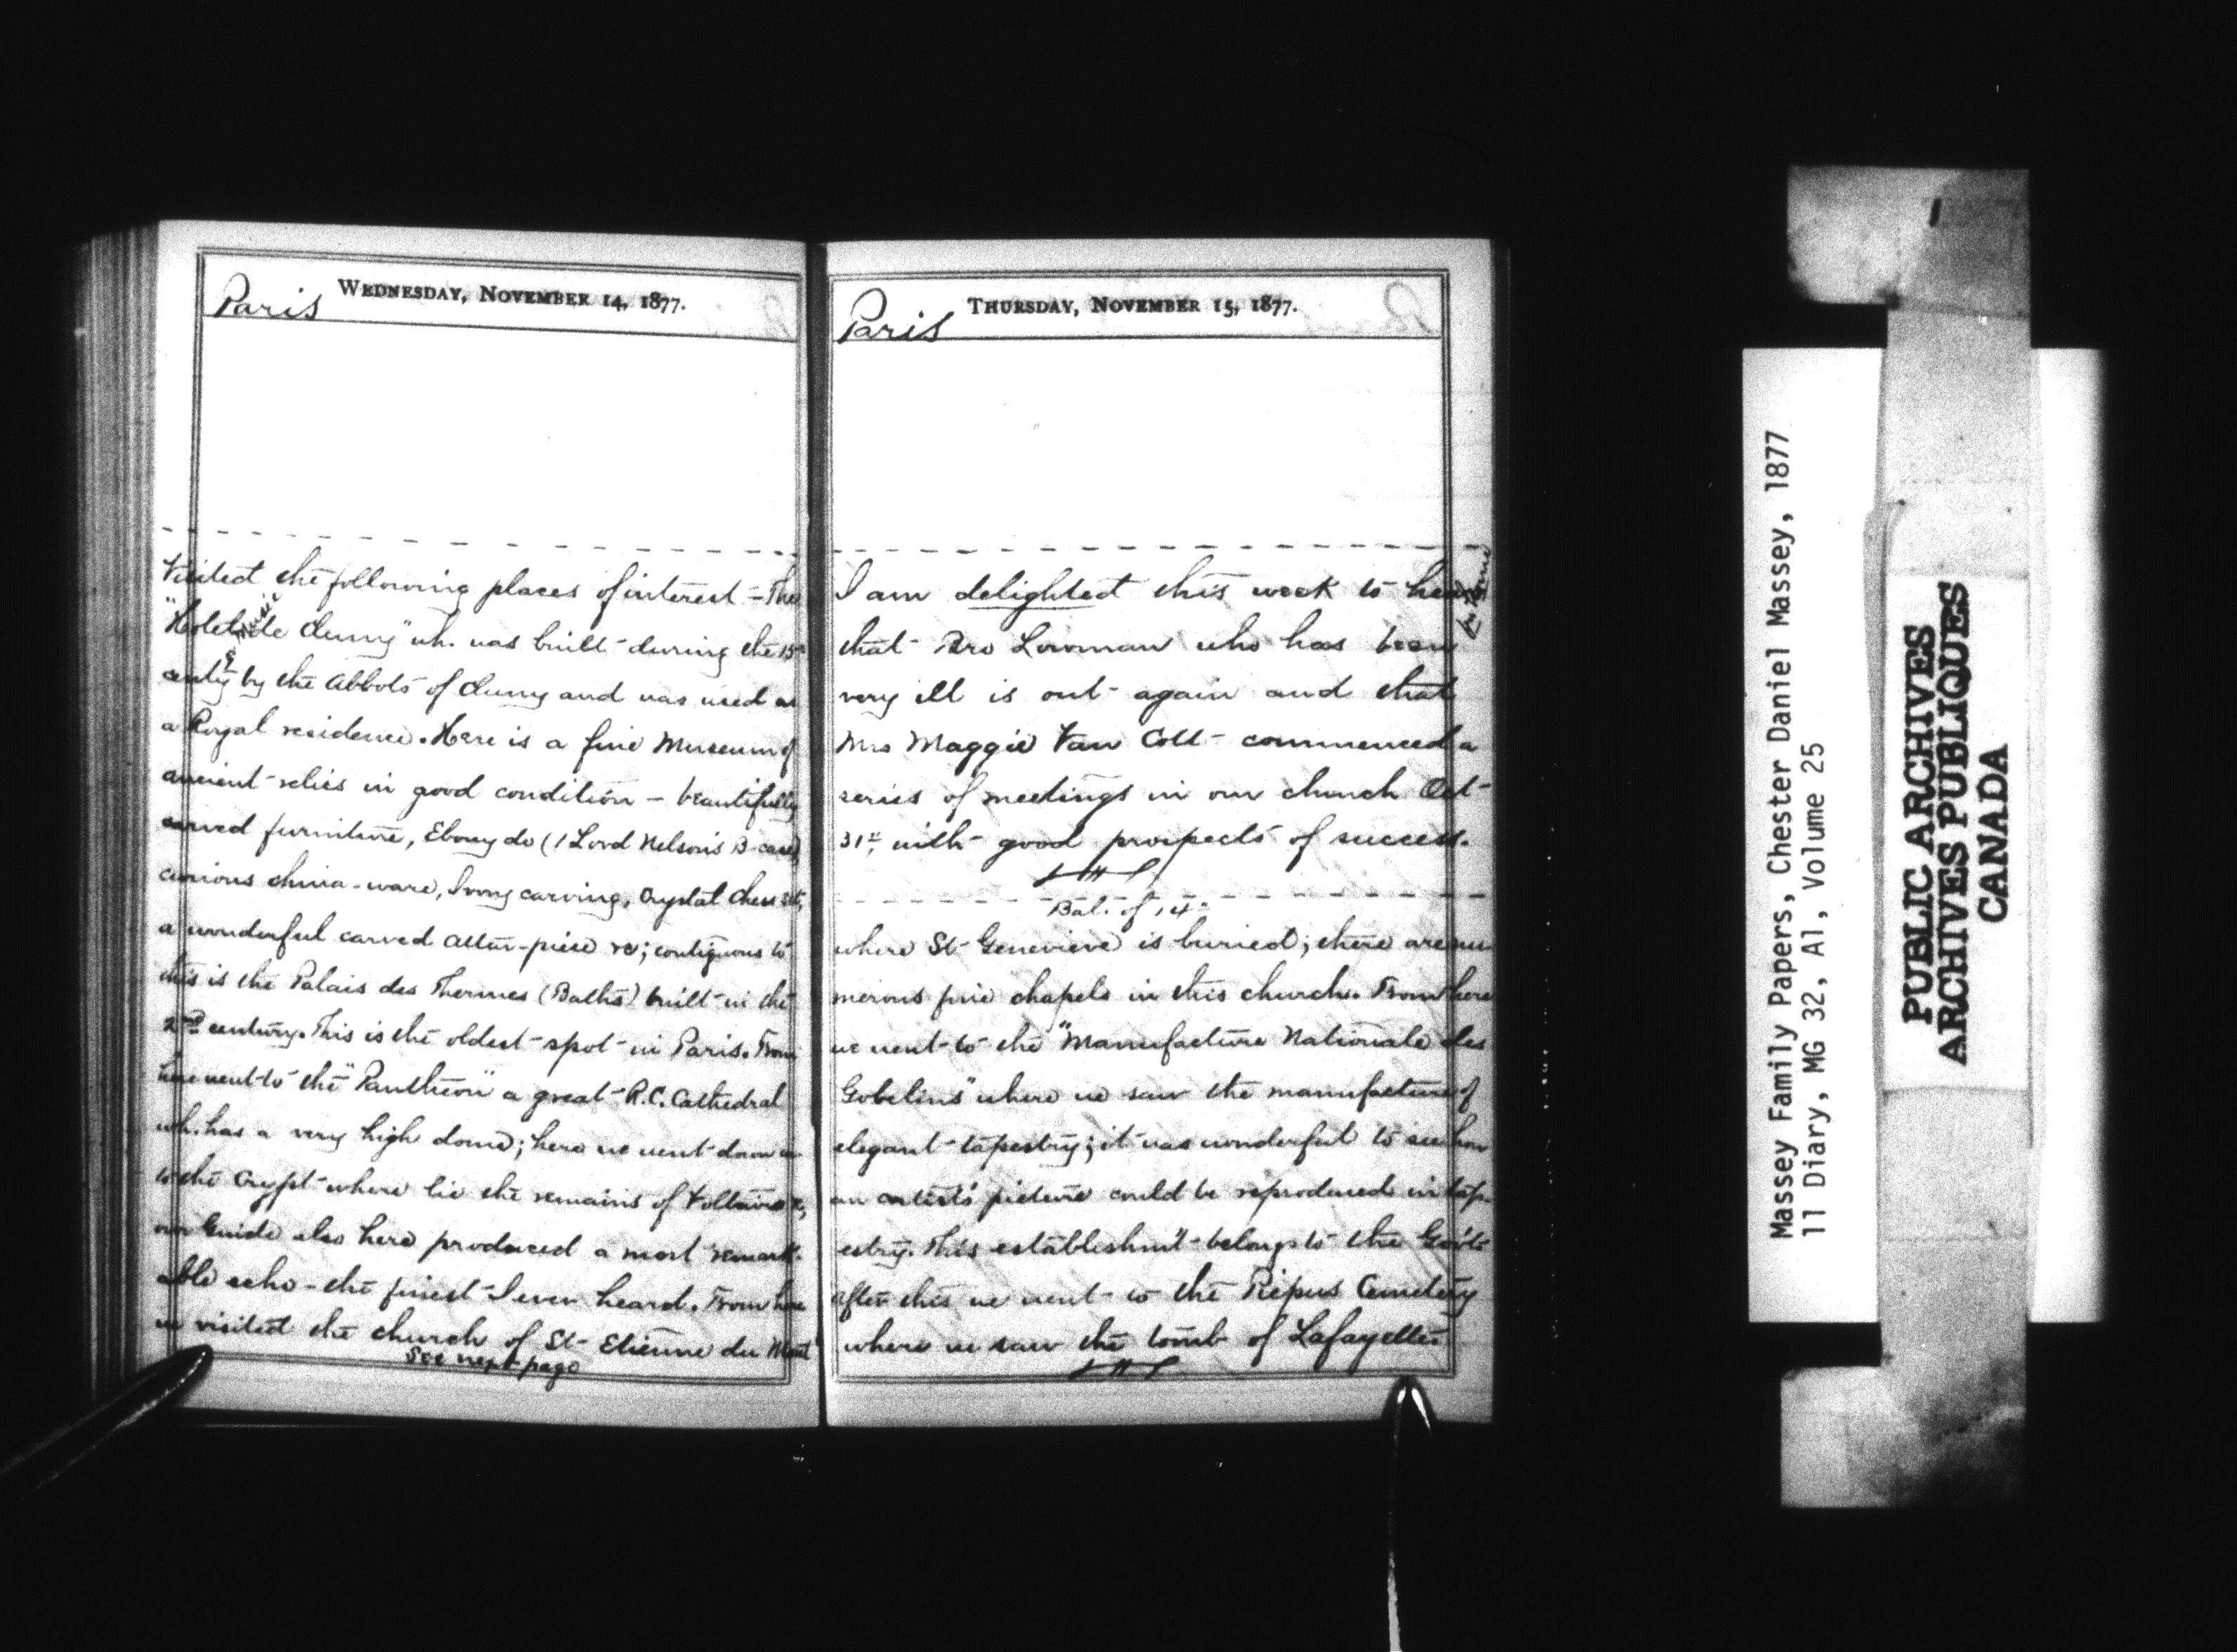 WEDNESDAY, NOVEMBER 14, 1877.
Paris
Visited the following places of interest - The
"Hotel de Cluny" wh. was built during the 15th
centy by the Abbots of Cluny and was used as
a Royal residence. Here is a fine Museum of
ancient relics in good condition - beautifully
carved furniture, Ebony do (1 Lord Nelson's B-case)
curious china-ware, Ivory carving, Crystal chess set,
a wonderful carved altar-piece &c; contiguous to
this is the Palais des Thermes (Baths) built in the
2nd century. This is the oldest spot in Paris. From
here went to the "Pantheon" a great R.C. Cathedral
wh. has a very high dome; here we went down in
to the Crypt where lie the remains of Voltaire &c,
our Guide also here produced a most remark-
able echo - the finest I ever heard. From here
we visited the church of St Etienne du Mont
See next page
THURSDAY, NOVEMBER 15, 1877.
Paris
I am delighted this week to hear
that Bro Lowman who has been
very ill is out again and that
Mrs Maggie Van Cott commenced a
series of meetings in our church Oct
31st, with good prospects of success.
Bal. of 14th
where St Genevieve is buried; there are nu
merous fine chapels in this church. From here
we went to the "Manufacture Nationale des
Gobelins" where we saw the manufacture of
elegant tapestry; it was wonderful to see how
an artist's picture could be reproduced in tap-
estry. This establishm't belongs to the Gov't
after this we went to the Picpus Cemetery
where we saw the tomb of Lafayette.
Massey Family Papers, Chester Daniel Massey, 1877
11 Diary, MG 32, A1, Volume 25
PUBLIC ARCHIVES
ARCHIVES PUBLIQUES
CANADA